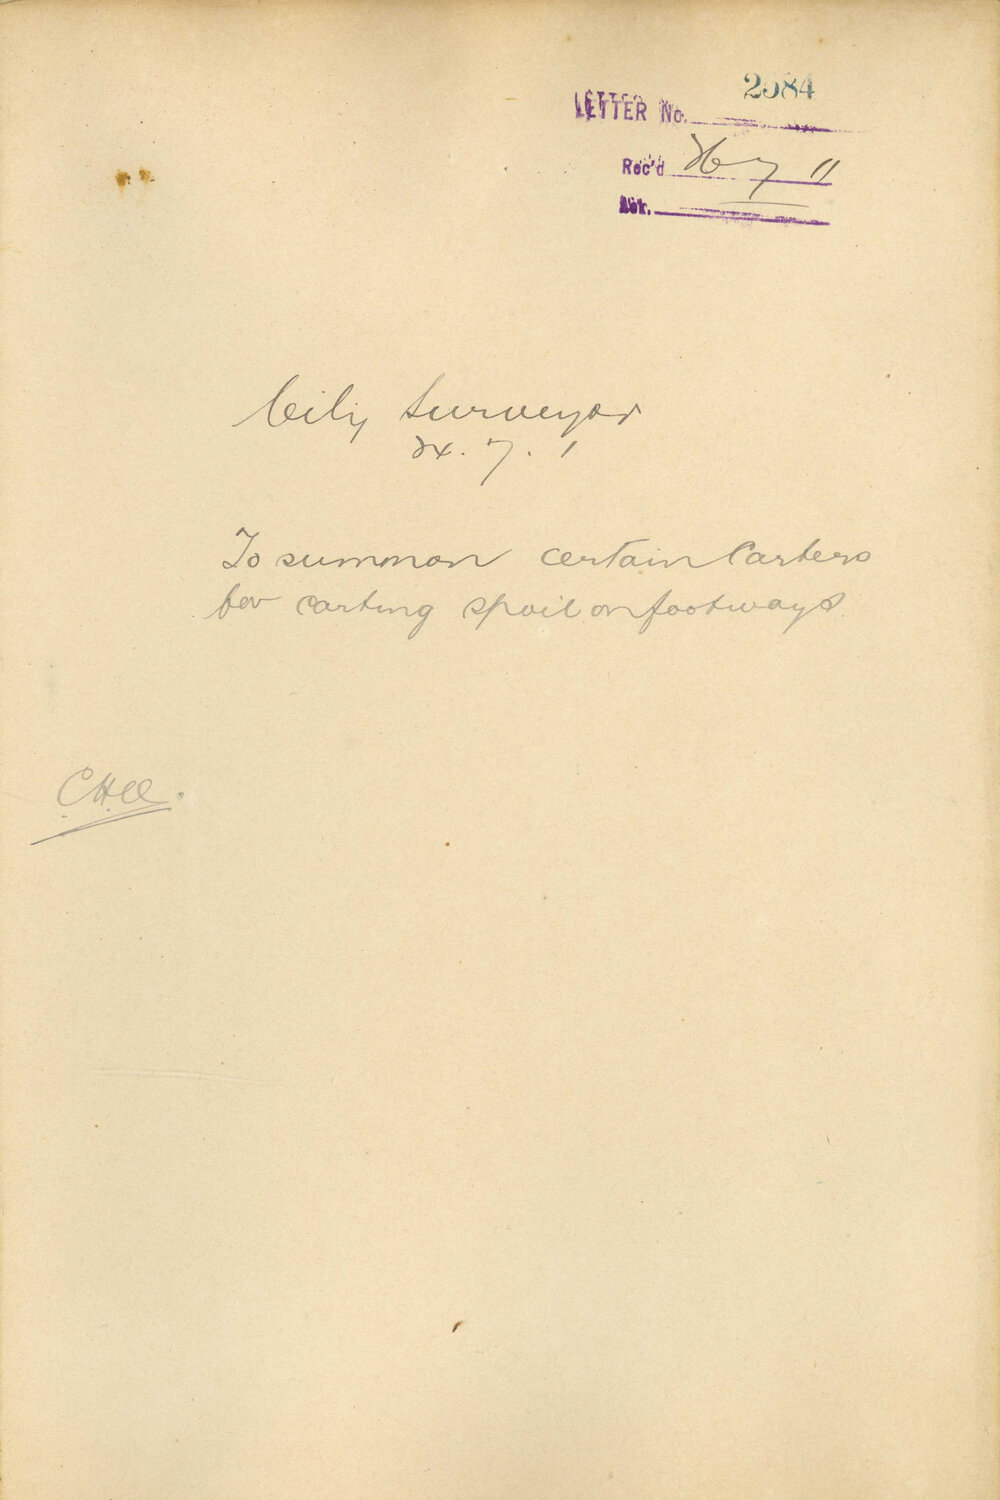 2584
LETTER No.
Rec'd 26 7 11
Ack.
City Surveyor
24. 7. 1
To summon certain Carters
for carting spoil on footways